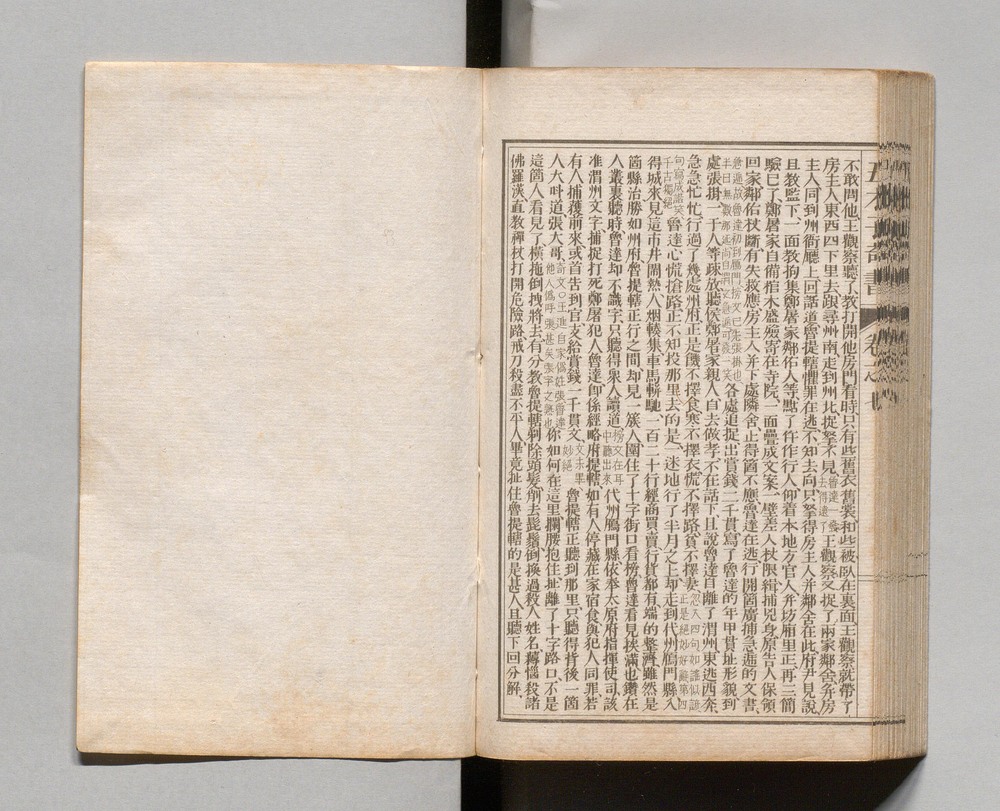 不敢問他王觀察聽了教打開他房門看時只有些舊衣舊裳和些被臥在裏面王觀察就帶了
房主人東西四下里去跟尋州南走到州北捉拏不見魯達一桑去得遠了王觀察又捉了兩家鄰舍并房
主人同到州衙廳上回話道魯提轄懼罪在逃不知去向只拏得房主人并鄰舍在此府尹見說
且教監下一面教拘集鄭屠家鄰佑人等點了仵作行人仰着本地方官人并坊廂里正再三簡
驗已了鄭屠家自備棺木盛殮寄在寺院一面疊成文案一壁差人杖限緝捕兇身原告人保領
回家鄰佑杖斷有失救應房主人并下處隣舍止得箇不應魯達在逃行開箇廣捕急遞的文書
各處追捉出賞錢一千貫寫了魯達的年甲貫址形貌到
處張掛一干人等疎放聽候鄭屠家親人自去做孝不在話下且說魯達自離了渭州東逃西奔
急急忙忙行過了幾處州府正是饑不擇食寒不擇衣慌不擇路貧不擇妻忽入四句如諺似謔正是絕妙好辭第四句寫成諧笑千古獨絕
魯達心慌搶路正不知投那里去的是一迷地行了半月之上却走到代州鴈門縣入
得城來見這市井鬧熱人烟輳集車馬軿馳一百二十行經商買賣行貨都有端的整齊雖然是
箇縣治勝如州府魯提轄正行之間却見一簇人圍住了十字街口看榜魯達看見挨滿也鑽在
人叢裏聽時魯達却不識字只聽得衆人讀道榜文在耳中聽出來代州鴈門縣依奉太原府指揮使司該
准渭州文字捕捉打死鄭屠犯人魯達即係經略府提轄如有人停藏在家宿食與犯人同罪若
有人捕獲前來或首告到官支給賞錢一千貫文文未畢妙絕魯提轄正聽到那里只聽得背後一箇
人大呌道張大哥奇文○王進自家僞姓張魯達他人僞呼張甚矣張字之熟也你如何在這里攔腰抱住扯離了十字路口不是
這箇人看見了橫拖倒拽將去有分教魯提轄剃除頭髮削去髭鬚倒換過殺人姓名薅惱殺諸
佛羅漢直教禪杖打開危險路戒刀殺盡不平人畢竟扯住魯提轄的是甚人且聽下回分解